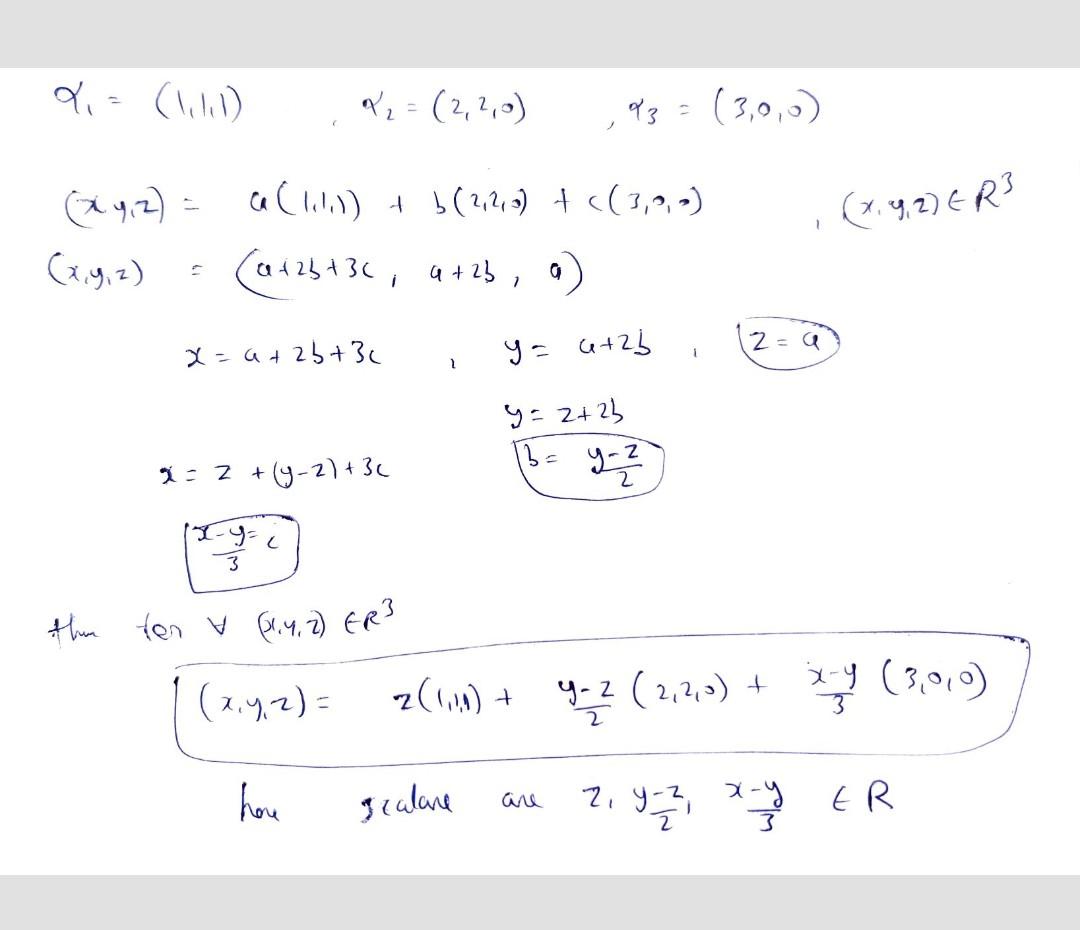 α₁ = (1,1,1) , α₂ = (2,2,0) , α₃ = (3,0,0)
(x,y,z) = a(1,1,1) + b(2,2,0) + c(3,0,0) , (x,y,z) ∈ R³
(x,y,z) = (a+2b+3c, a+2b, a)
x = a+2b+3c , y = a+2b , z = a
y = z+2b
x = z + (y-z) + 3c
b = (y-z)/2
(x-y)/3 = c
then for ∀ (x,y,z) ∈ R³
(x,y,z) = z(1,1,1) + (y-z)/2 (2,2,0) + (x-y)/3 (3,0,0)
here scalare are z, (y-z)/2, (x-y)/3 ∈ R